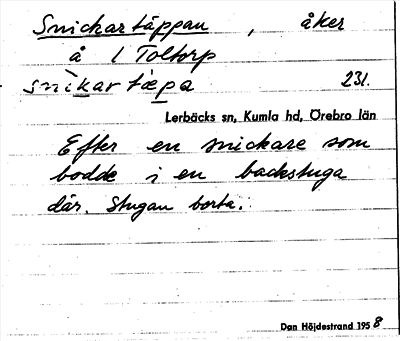 Snickartäppan, åker
å 1 Toltorp
snìkar tæpa 231.
Lerbäcks sn, Kumla hd, Örebro län
Efter en snickare som
bodde i en backstuga
där. Stugan borta.
Dan Höjdestrand 1958